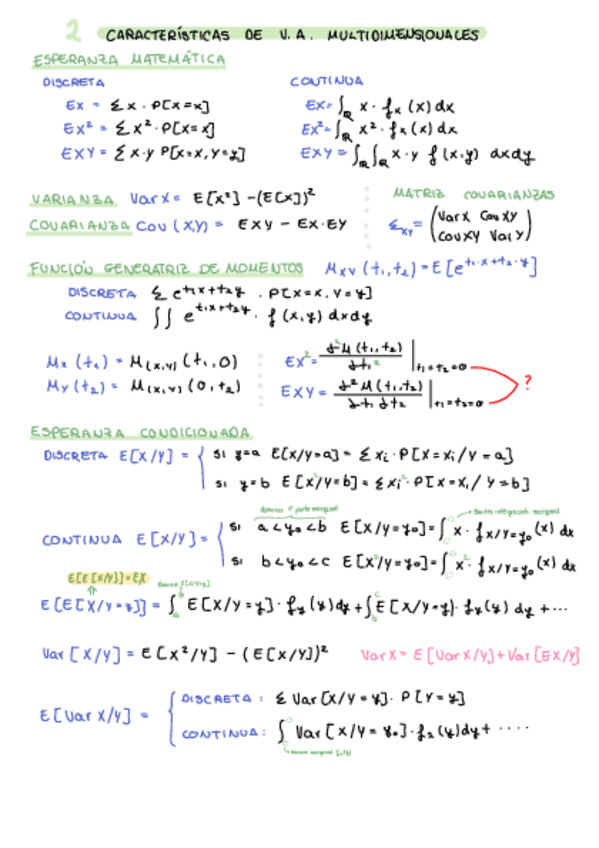 2 CARACTERÍSTICAS DE V.A. MULTIDIMENSIONALES
ESPERANZA MATEMÁTICA
DISCRETA
EX = Σ x · P[X=x]
EX² = Σ x² · P[X=x]
EXY = Σ x·y P[X=x, Y=y]
CONTINUA
EX = ∫ℝ x · fx (x) dx
EX² = ∫ℝ x² · fx (x) dx
EXY = ∫ℝ ∫ℝ x·y f (x,y) dxdy
VARIANZA Var X = E[X²] - (E[X])²
COVARIANZA Cov (X,Y) = EXY - EX·EY
MATRIZ COVARIANZAS
Σxy = (Var X Cov XY
Cov XY Var Y)
FUNCIÓN GENERATRIZ DE MOMENTOS Mxy (t₁,t₂) = E [e^t₁·x+t₂·y]
DISCRETA Σ e^t₁x+t₂y · P[X=x, Y=y]
CONTINUA ∫∫ e^t₁x+t₂y · f (x,y) dxdy
Mx (t₁) = M(x,y) (t₁,0)
My (t₂) = M(x,y) (0,t₂)
EX² = ∂²M (t₁,t₂) / ∂t₁² | t₁=t₂=0
EXY = ∂²M (t₁,t₂) / ∂t₁ ∂t₂ | t₁=t₂=0
?
ESPERANZA CONDICIONADA
DISCRETA E[X/Y] = { si y=a E[X/Y=a] = Σ xi · P[X=xi / Y=a]
si y=b E[X²/Y=b] = Σ xi² · P[X=xi / Y=b]
CONTINUA E[X/Y] = { si a<y₀<b E[X/Y=y₀] = ∫ x · fx/Y=y₀ (x) dx
si b<y₀<c E[X²/Y=y₀] = ∫ x² · fx/Y=y₀ (x) dx
E[E[X/Y]] = EX
E[E[X/Y=y]] = ∫ₐᵇ E[X/Y=y] · fy (y) dy + ∫ E[X/Y=y] · fy (y) dy + ...
Var [X/Y] = E[X²/Y] - (E[X/Y])²
Var X = E[Var X/Y] + Var [EX/Y]
E[Var X/Y] = { DISCRETA: Σ Var [X/Y=y] · P[Y=y]
CONTINUA: ∫ Var [X/Y=y₀] · f₂ (y) dy + ....